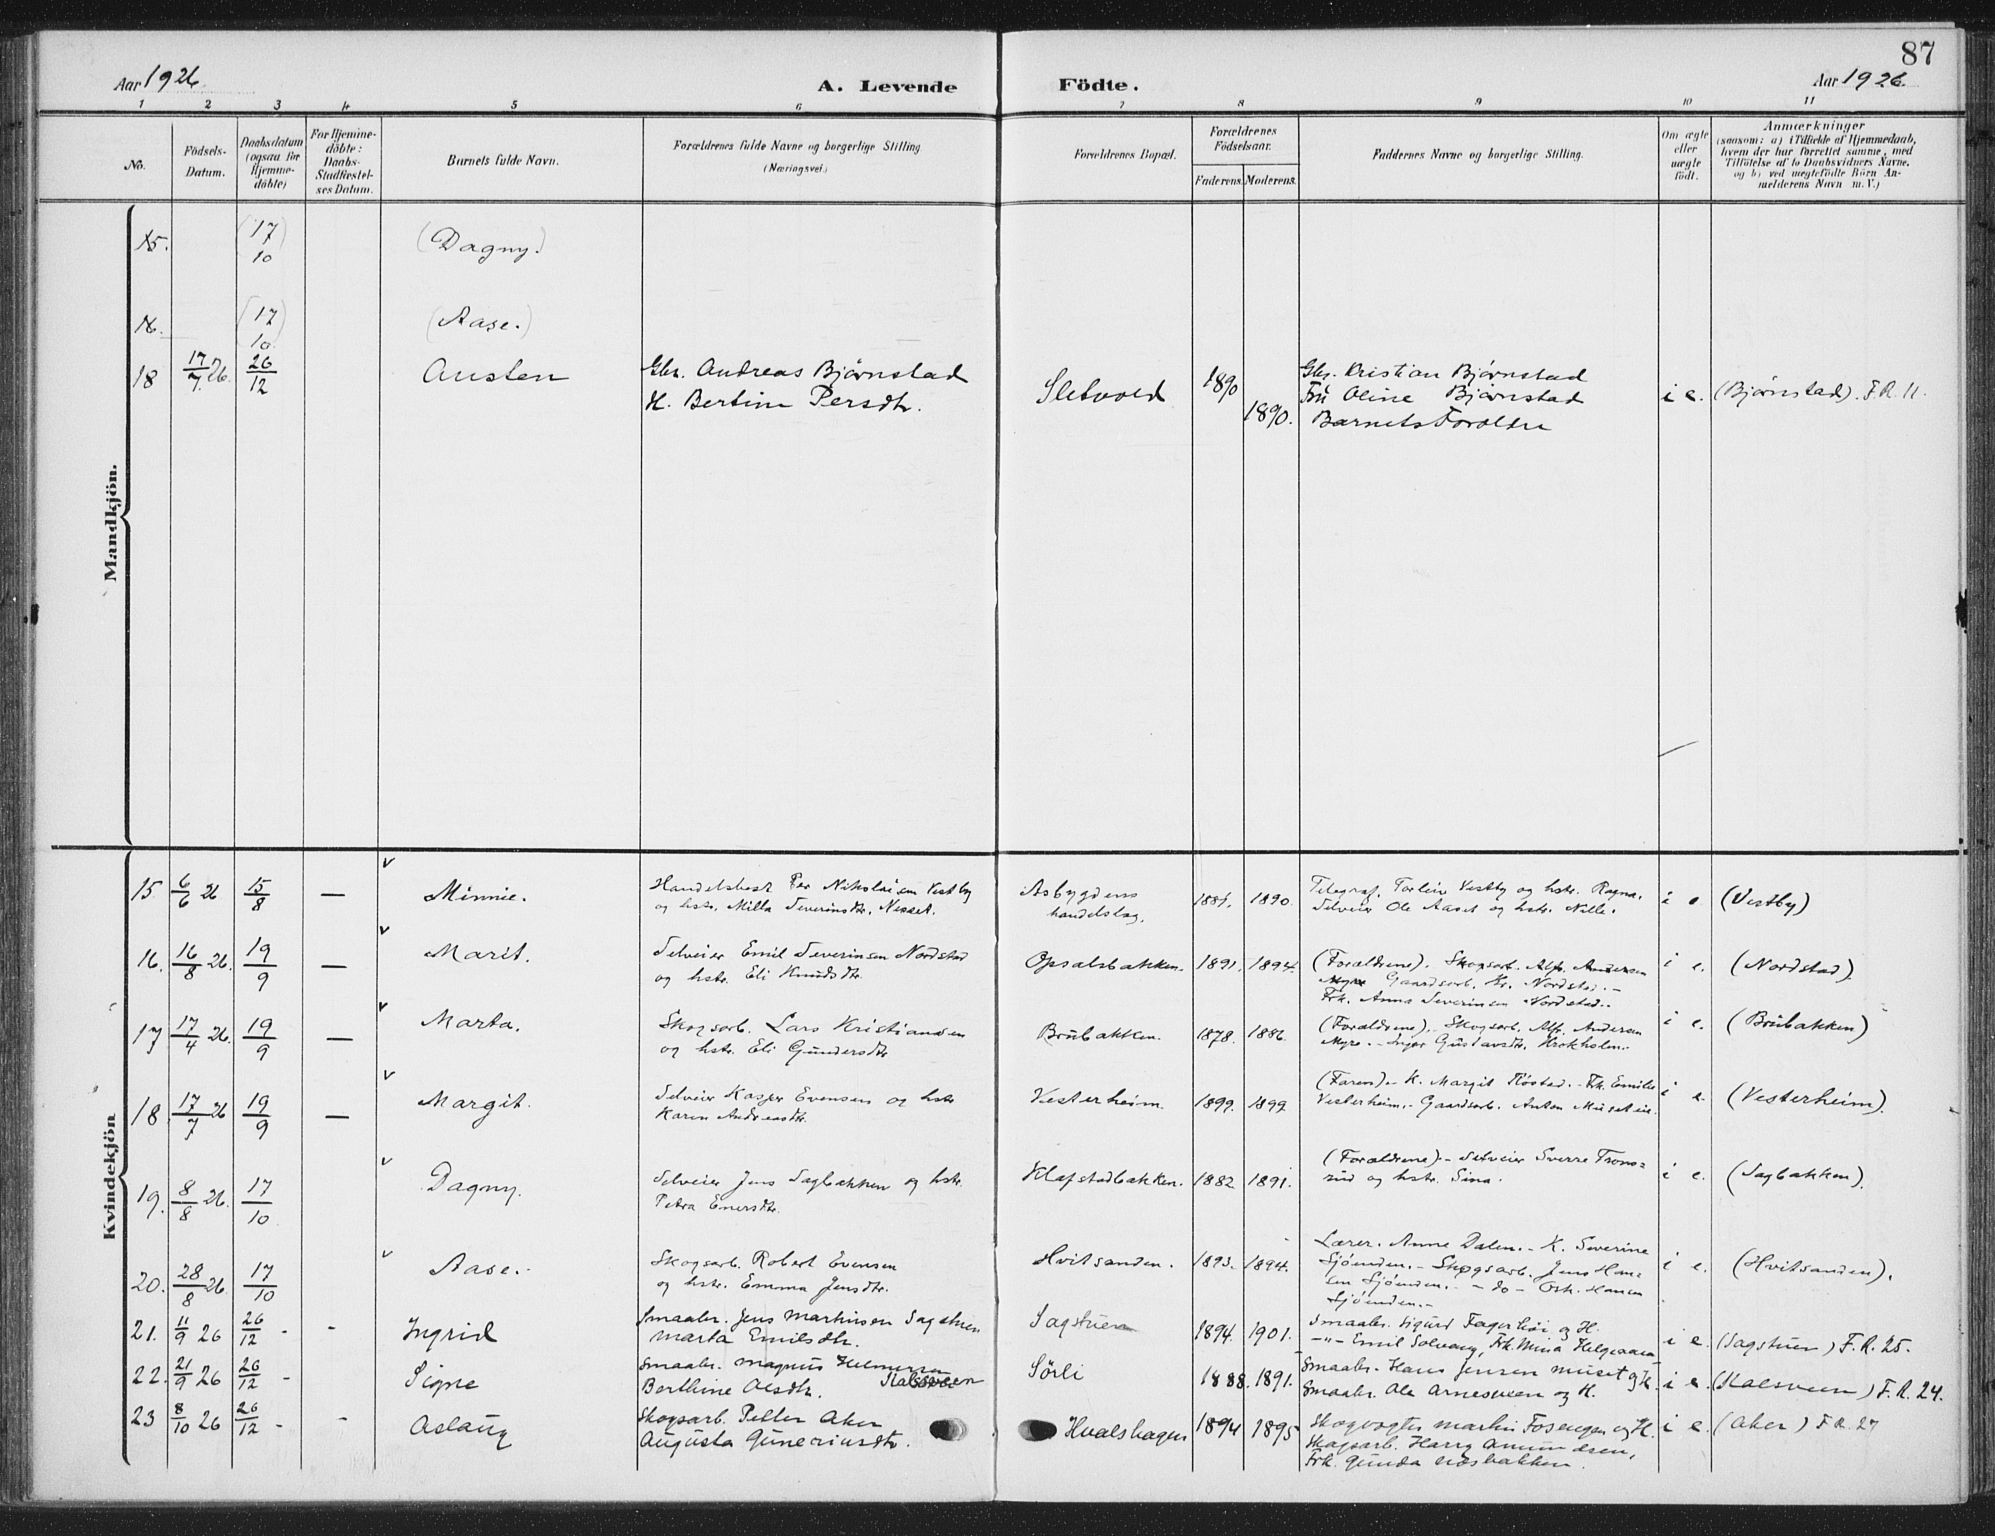 87
Aar 1926.
A. Levende Födte.
Aar 1926.
1 2 3 4 5 6 7 8 9 10 11
No.
Födsels-
Datum.
Daabsdatum
(ogsaa for
Hjemme-
döbte)
For Hjemme-
döbte:
Daabs-
Stadfæstel-
ses Datum.
Barnets fulde Navn.
Forældrenes fulde Navne og borgerlige Stilling
(Næringsvei.)
Forældrenes Bopæl.
Forældrenes
Födselsaar.
Faderens. Moderens.
Faddernes Navne og borgerlige Stilling.
Om ægte
eller
uægte
födt.
Anmærkninger
(saasom: a) i Tilfælde af Hjemmedaab,
hvem der har forrettet samme, med
Tilföielse af to Daabsvidners Navne,
og b) ved uægtefödte Börn An-
melderens Navn m. V.)
Mandkjön.
15. (17/10) (Dagny.)
16. (17/10) (Aase.)
18 17/7 26. 26/12 Austen
Gbr. Andreas Bjørnstad
H. Bertine Persdtr.
Sletvold 1890 1890.
Gbr. Kristian Bjørnstad
Fru Oline Bjørnstad
Barnets Foreldre
i e. (Bjørnstad). F.R. 11.
Kvindekjön
15. 6/6 26 15/8 — Minnie.
Handelsbest. Per Nikolaisen Vestby
og hstr. Milla Severinsdtr. Nesset.
Aasbygdens
handelslag.
1890.
Telegraf. Torleiv Vestby og hstr. Ragna.
Selveier Ole Aaset og hstr. Nille.
i e (Vestby)
16. 16/8 26. 19/9 — Marit.
Selveier Emil Severinsen Nordstad
og hstr. Eli Knudsdtr.
Opsalsbakken. 1891. 1894.
(Forældrene). Skogsarb. Alf. Andersen
Myre Gaardsarb. Kr. Nordstad. –
Frk. Anna Severinsen Nordstad..
i e. (Nordstad)
17. 17/4 26. 19/9 — Marta.
Skogsarb. Lars Kristiansen
og hstr. Eli Gundersdtr
Brubakken. 1878. 1886.
(Forældrene).. Skogsarb. Alf. Andersen
Myre. – Inger Gustavsdtr. Krokholen..
i e. (Brubakken)
18. 17/7 26 19/9 — Margit.
Selveier Kasper Evensen og hstr
Karen Andreasdtr.
Vesterheim. 1899. 1899
(Faren). – K. Margit Røstad. – Frk. Emilie
Vesterheim. – Gaardsarb. Anton
i e. (Vesterheim).
19. 8/8 26. 17/10 Dagny.
Selveier Jens Sagbakken og hstr.
Petra Enersdtr.
Klafstadbakken. 1882 1891.
(Forældrene). – Selveier Sverre Trons=
rud og hstr. Sina.
i e. (Sagbakken).
20. 28/8 26. 17/10 Aase.
Skogsarb. Robert Evensen
og hstr. Emma Jensdtr.
Hvitsanden. 1893. 1894.
Lærer. Anne Dalen. – K. Severine
Sjøenden. – Skogsarb. Jens Han=
sen Sjøenden. – do – Osk. Hansen
Sjøenden. –
i e. (Hvitsanden).
21. 11/9 26 26/12 - - Ingrid
Smaabr. Jens Martinsen Sagstuen
Marta Emilsdtr.
Sagstuen 1894. 1901.
Smaabr. Sigurd Fagerhøi og H.
–"– Emil Solvang, Frk. Mina Helgeaasen
i e. (Sagstuen) F.R. 25.
22. 21/9 26 26/12 - Signe
Smaabr. Magnus Helmersen
Berthine Olsdtr. Kalsveen
Sörli 1888. 1891.
Smaabr. Hans Jensen Muset og H.
Smaabr. Ole Arnesveen og H.
i e. (Kalsveen) F.R. 24.
23 8/10 26 26/12 - - Aslaug
Skogsarb. Petter Aker
Augusta Guneriusdtr.
Hvalshagen 1894 1895
Skogvogter Martin Fosengen og H.
Skogsarb. Harry Amundsen,
Frk. Gunda Næsbakken.
i e. (Aker) F.R. 27